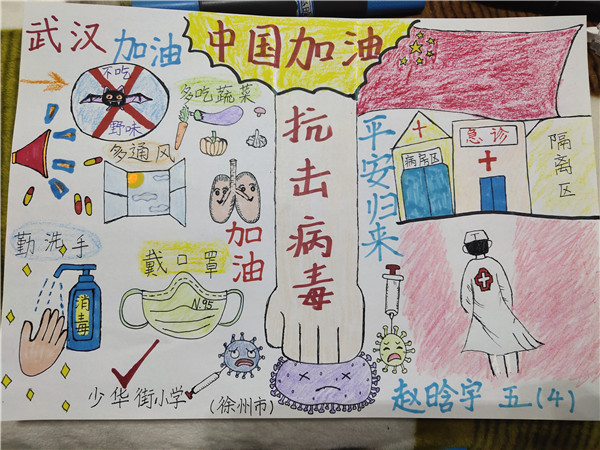 武汉加油
中国加油
不吃
野味
多吃蔬菜
多通风
加油
抗击病毒
平安归来
急诊
病房区
隔离区
勤洗手
消毒
戴口罩
N.95
少华街小学
(徐州市)
赵晗宇 五(4)